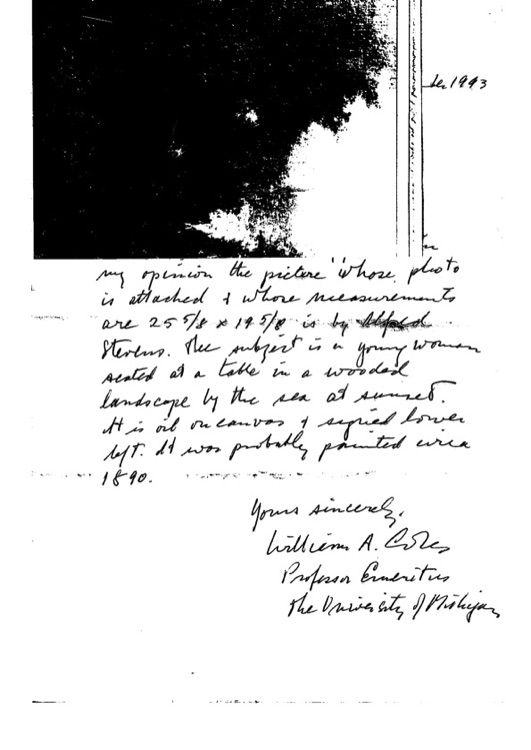 1993
In
my opinion the picture whose photo
is attached & whose measurements
are 25 5/8 x 19 5/8 is by Alfred
Stevens. The subject is a young woman
seated at a table in a wooded
landscape by the sea at sunset.
It is oil on canvas & signed lower
left. It was probably painted circa
1890.
Yours sincerely,
William A. Coles
Professor Emeritus
The University of Michigan